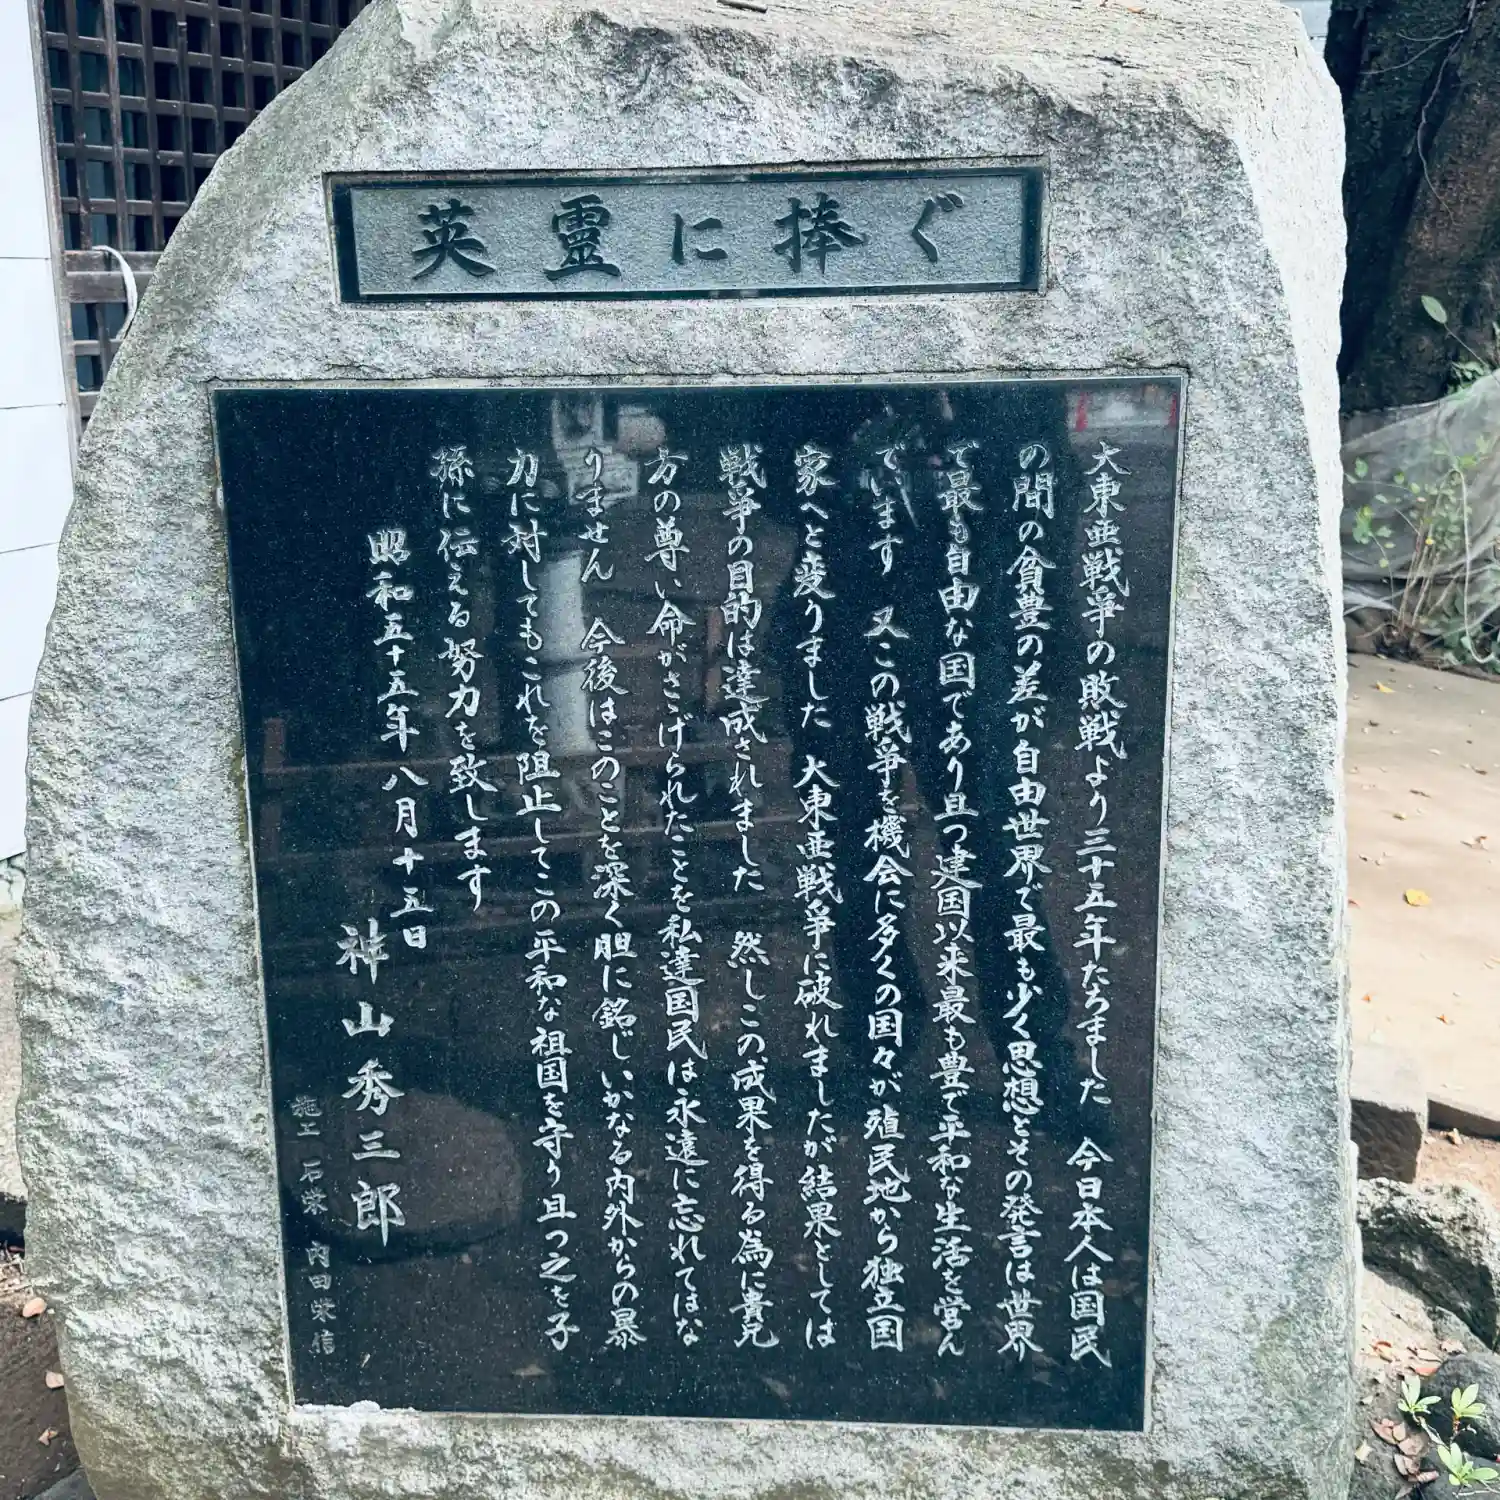 英霊に捧ぐ
大東亜戦争の敗戦より三十五年たちました　今日本人は国民
の間の貧豊の差が自由世界で最も少く思想とその発言は世界
で最も自由な国であり且つ建国以来最も豊で平和な生活を営ん
でいます　又この戦争を機会に多くの国々が殖民地から独立国
家へと変りました　大東亜戦争に破れましたが結果としては
戦争の目的は達成されました　然しこの成果を得る為に貴兄
方の尊い命がさげられたことを私達国民は永遠に忘れてはな
りません　今後はこのことを深く胆に銘じいかなる内外からの暴
力に対してもこれを阻止してこの平和な祖国を守り且つ之を子
孫に伝える努力を致します
昭和五十五年八月十五日
神山秀三郎
施工　石栄　内田栄信